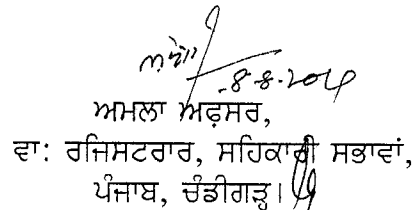 8-8-2014
ਅਮਲਾ ਅਫ਼ਸਰ,
ਵਾ: ਰਜਿਸਟਰਾਰ, ਸਹਿਕਾਰੀ ਸਭਾਵਾਂ,
ਪੰਜਾਬ, ਚੰਡੀਗੜ੍ਹ।